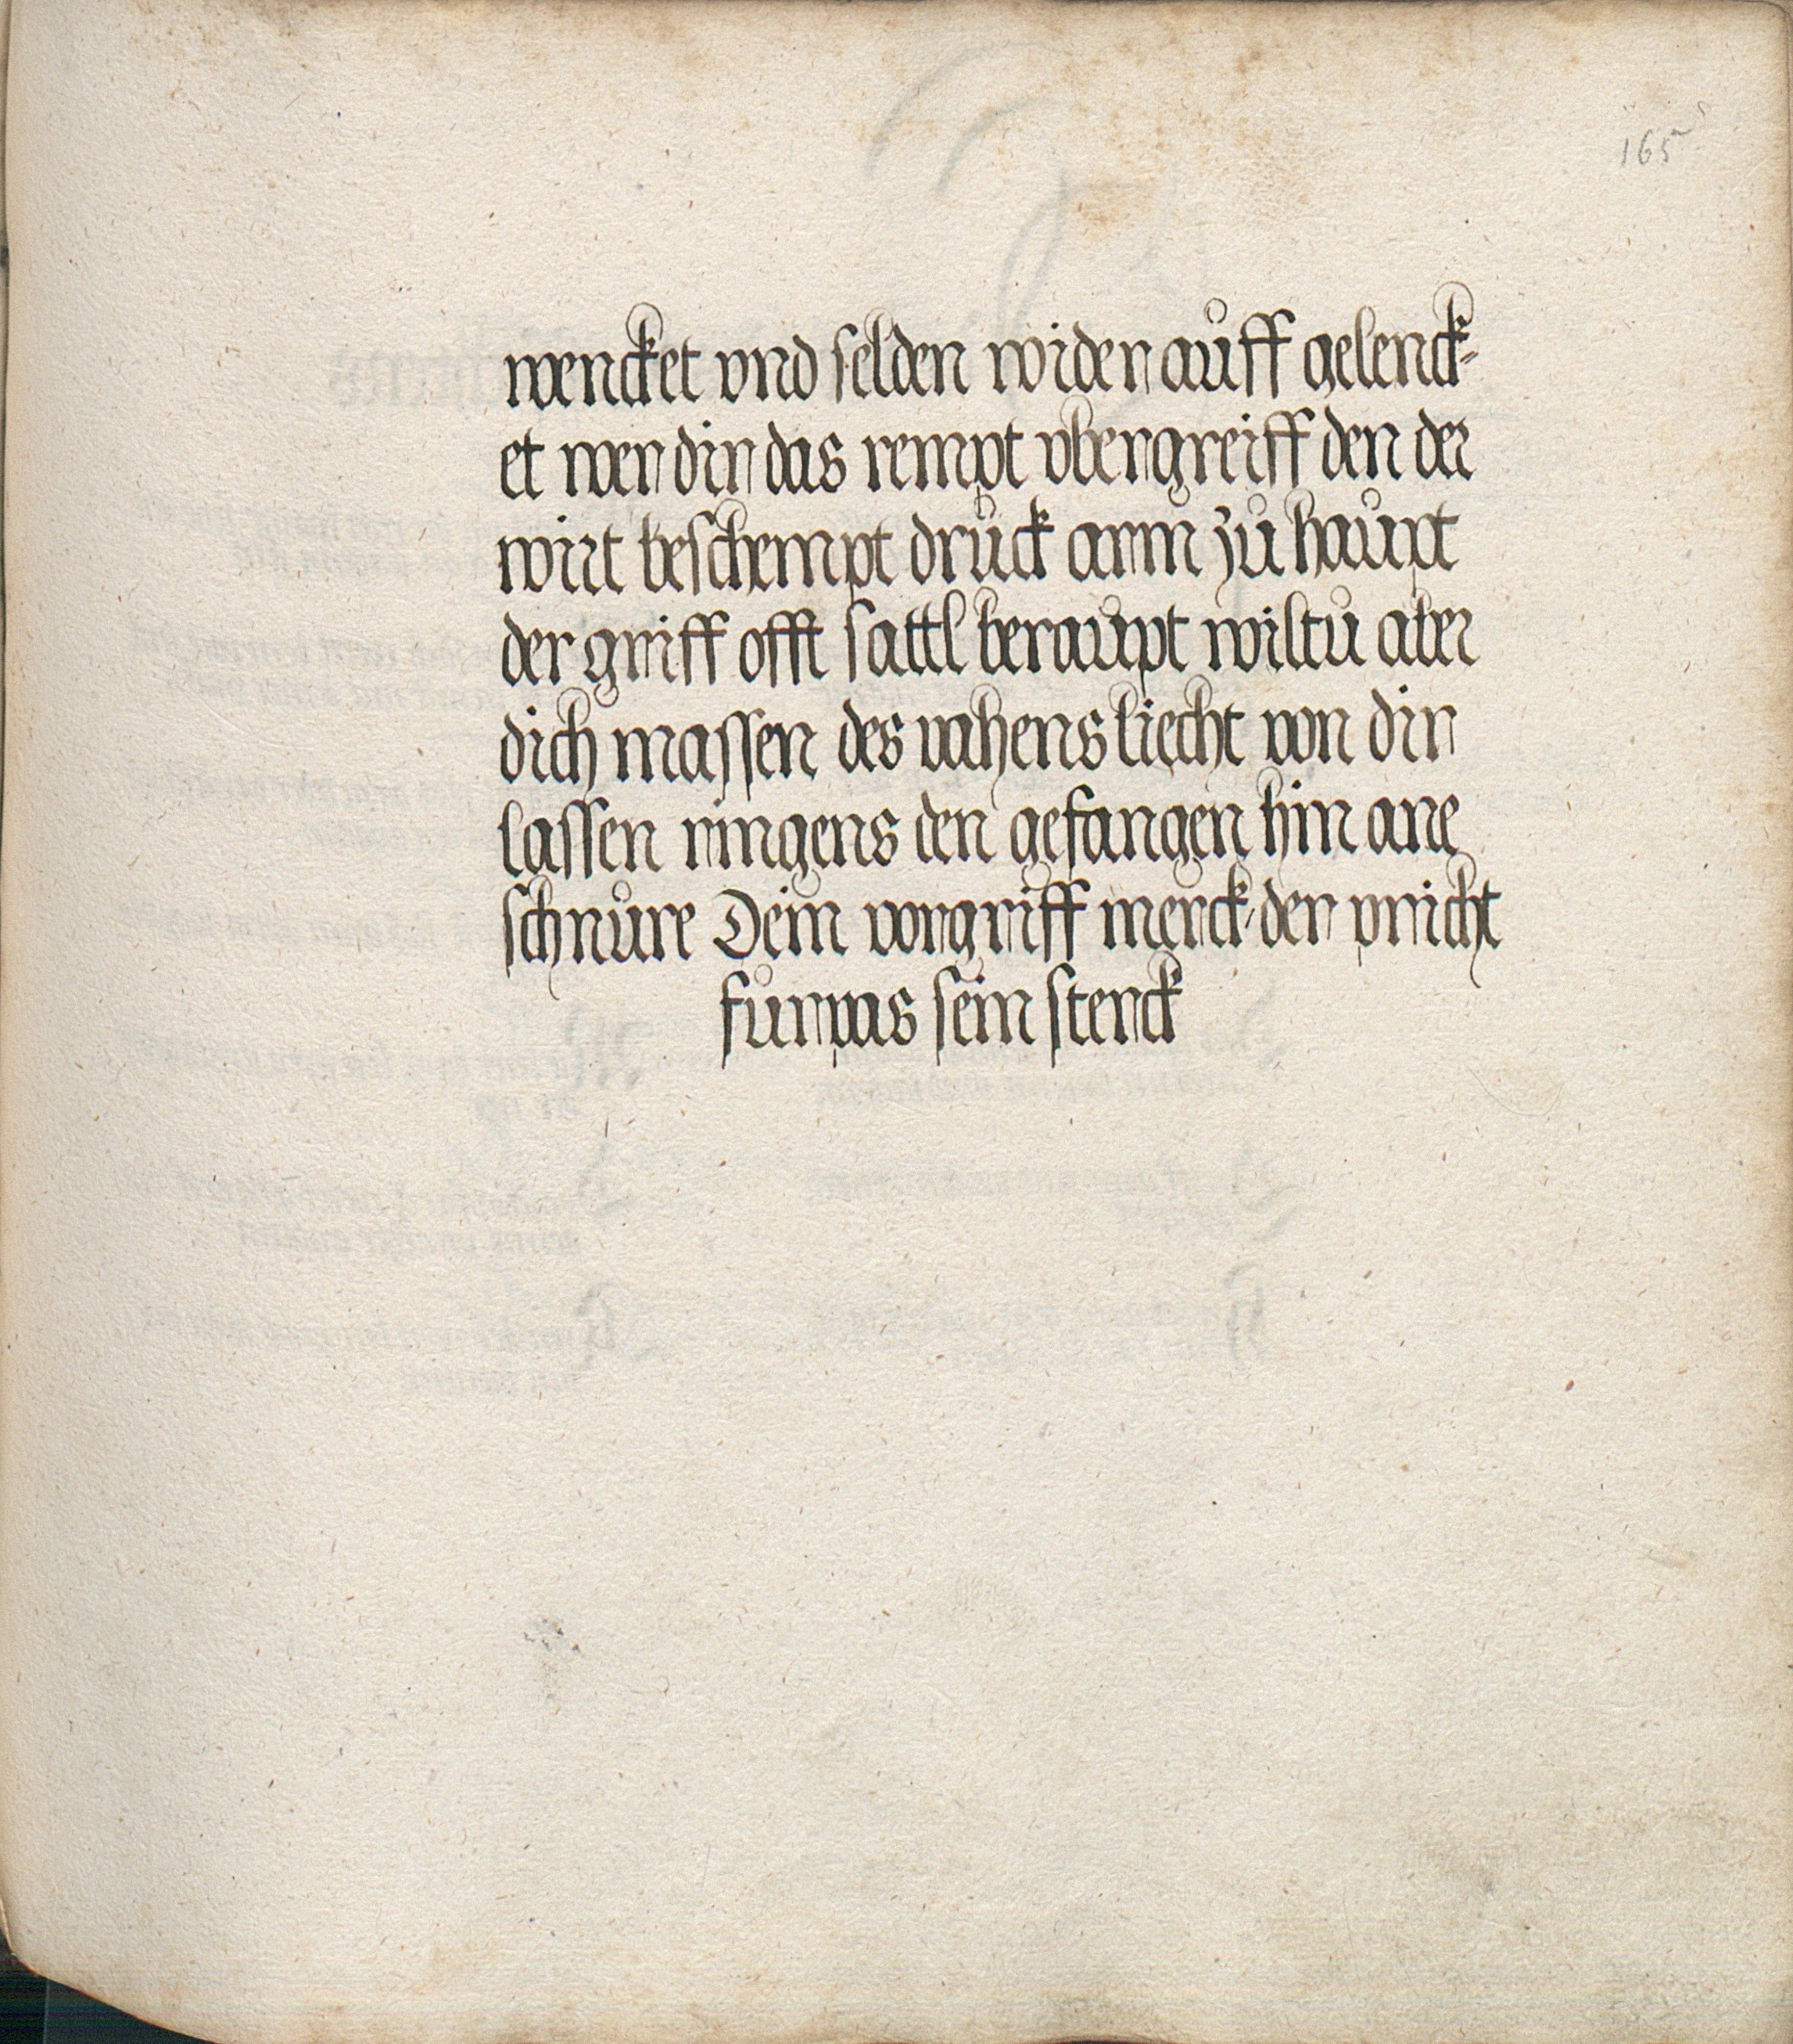 165
wencket vnd selden wider auff gelenck-
et wer dir das rempt vbergreiff den der
wirt beschempt druck arm zu haupt
der griff offt sattl beraupt wiltu aber
dich massen des vahens liecht von dir
lassen ringens den gefangen hin ane
schnure Dein vorgriff merck der vricht
furwas sein sterck